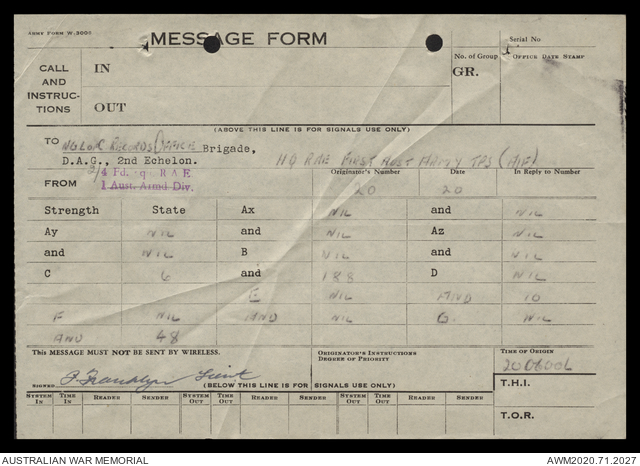 ARMY FORM W.3008
MESSAGE FORM
Serial No
CALL AND INSTRUC-TIONS
IN
OUT
No. of Group
GR.
OFFICE DATE STAMP
(ABOVE THIS LINE IS FOR SIGNALS USE ONLY)
TO RECORDS OFFICE Brigade,
D.A.G., 2nd Echelon. HQ RAE FIRST AUST ARMY TPS (AIF)
FROM 2/4 Fd. Sqn R A E
1 Aust. Armd Div.
Originator's Number 20
Date 20
In Reply to Number
Strength State Ax NIL and NIL
Ay NIL and NIL Az NIL
and NIL B NIL and NIL
C 6 and 188 D NIL
E NIL AND 10
F NIL AND NIL G. NIL
AND 48
This MESSAGE MUST NOT BE SENT BY WIRELESS.
ORIGINATOR'S INSTRUCTIONS
DEGREE OF PRIORITY
TIME OF ORIGIN
200600L
SIGNED P. Franklyn Lieut
(BELOW THIS LINE IS FOR SIGNALS USE ONLY)
T.H.I.
SYSTEM IN TIME IN READER SENDER SYSTEM OUT TIME OUT READER SENDER SYSTEM OUT TIME OUT READER SENDER
T.O.R.
AUSTRALIAN WAR MEMORIAL
AWM2020.71.2027